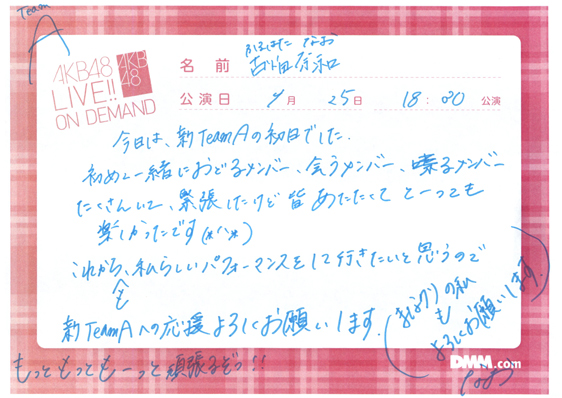 Team
A
AKB48
LIVE!!
ON DEMAND
AKB
48
ふるはた なお
名 前 古畑奈和
公演日 9月 25日 18:00 公演
今日は、新TeamAの初日でした.
初めて一緒におどるメンバー、会うメンバー、喋るメンバー
たくさんいて、緊張したけど皆あたたくて とーっても
楽しかったです(*^^*)
これからも、私らしいパフォーマンスをして行きたいと思うので
新TeamAへの応援よろしくお願いします.
の私
も
よろしくお願いします.
もっともっともーっと頑張るぞっ!!
DMM.com
なお